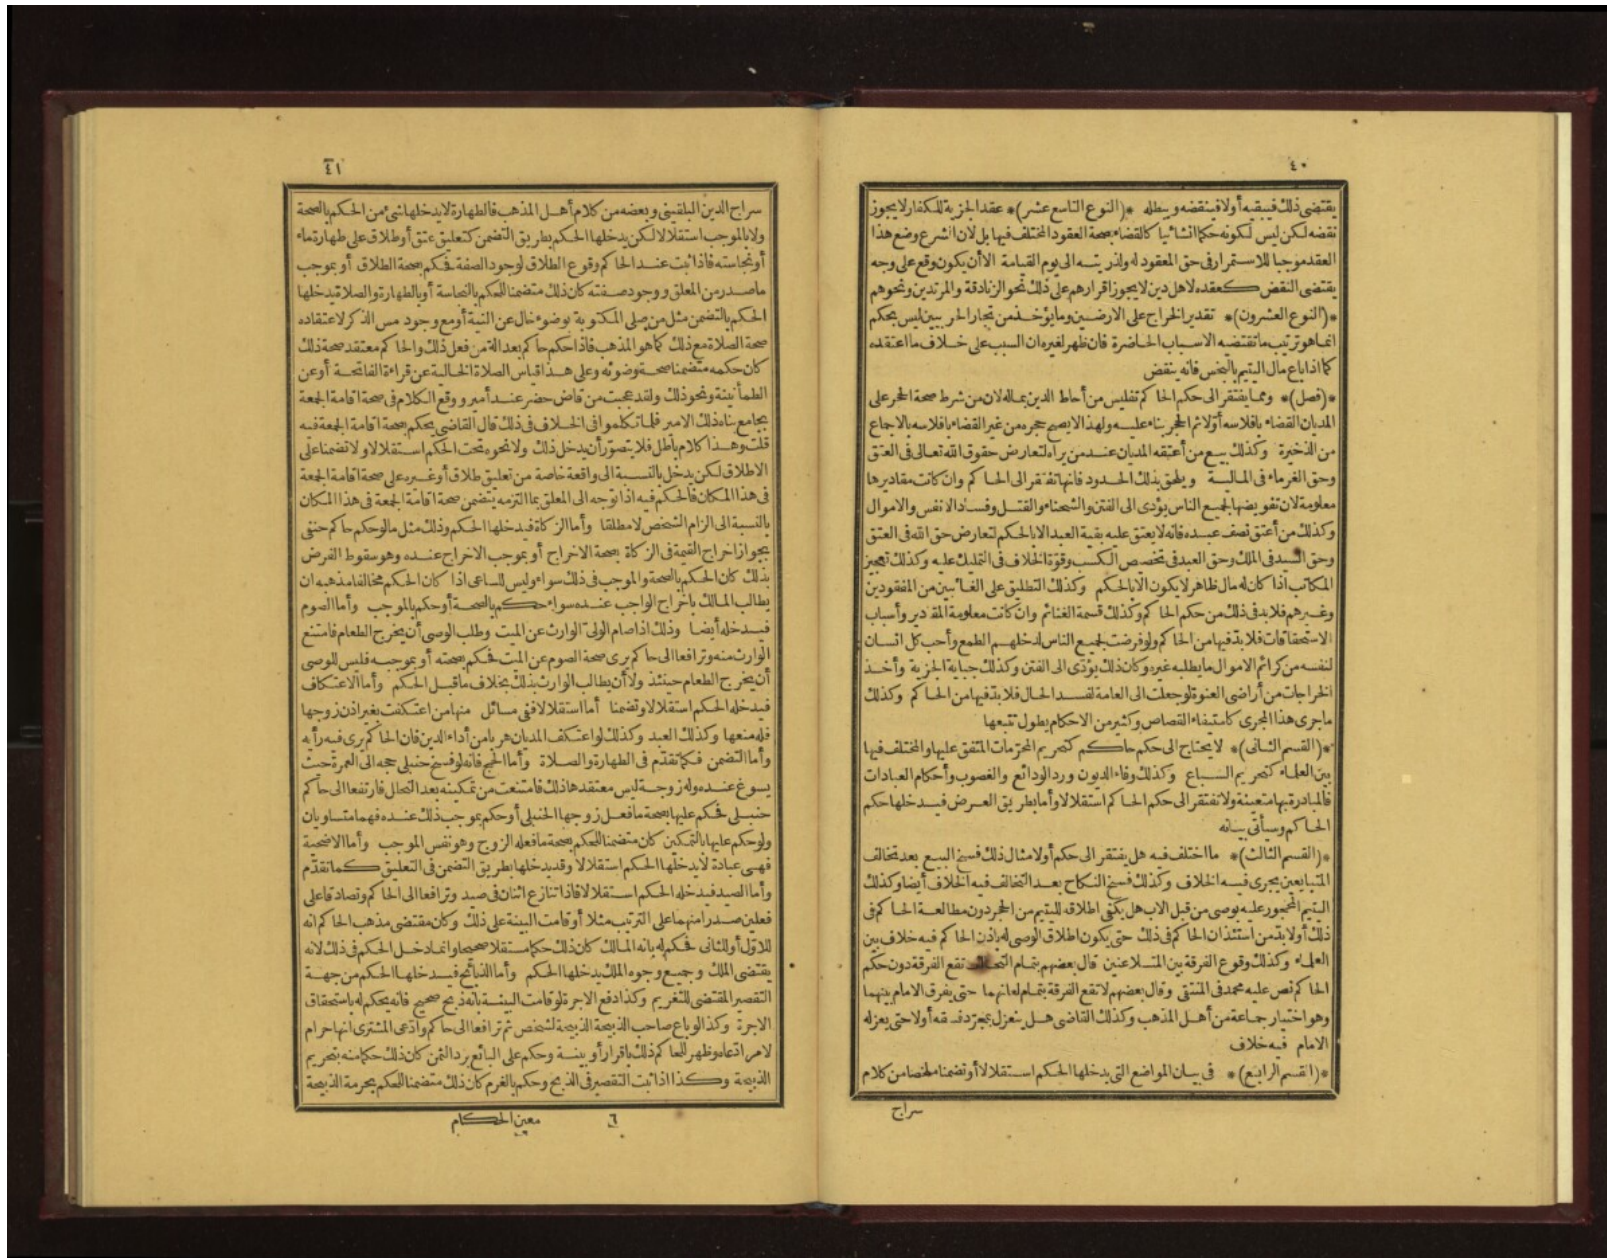 ٤٠
يقتضى ذلك فيبقيه أولا فينقضه ويبطله *(النوع التاسع عشر)* عقد الجزية للكفار لا يجوز
نقضه لكن ليس لكونه حكما انشائيا كالقضاء بصحة العقود المختلف فيها بل لان الشرع وضع هذا
العقد موجبا للاستمرار فى حق المعقود له ولذريته الى يوم القيامة الا أن يكون وقع على وجه
يقتضى النقض كعقده لاهل دين لا يجوز اقرارهم على ذلك نحو الزنادقة والمرتدين ونحوهم
*(النوع العشرون)* تقدير الخراج على الارضين وما يؤخذ من تجار الحربيين ليس بحكم
انما هو ترتيب ما تقتضيه الاسباب الحاضرة فان ظهر لغيره ان السبب على خلاف ما اعتقده
كما اذا باع مال اليتيم بالبخس فانه ينقض
*(فصل)* ومما يفتقر الى حكم الحاكم تفليس من أحاط الدين بماله لان من شرط صحة الحجر على
المديان القضاء بافلاسه أولا ثم الحجر بناء عليه ولهذا لا يصح حجره من غير القضاء بافلاسه بالاجماع
من الذخيرة وكذلك بيع من أعتقه المديان عند من يراه لتعارض حقوق الله تعالى فى العتق
وحق الغرماء فى المالية ويلحق بذلك الحدود فانها تفتقر الى الحاكم وان كانت مقاديرها
معلومة لان تفويضها لجميع الناس يؤدى الى الفتن والشحناء والقتل وفساد الانفس والاموال
وكذلك من أعتق نصف عبده فانه لا يعتق عليه بقية العبد الا بالحكم لتعارض حق الله فى العتق
وحق السيد فى الملك وحق العبد فى تخصص الكسب وقوة الخلاف فى التمليك عليه وكذلك تعجيز
المكاتب اذا كان له مال ظاهر لا يكون الا بالحكم وكذلك التطليق على الغائبين من المفقودين
وغيرهم فلا بد فى ذلك من حكم الحاكم وكذلك قسمة الغنائم وان كانت معلومة المقادير وأسباب
الاستحقاقات فلا بد فيها من الحاكم ولو فرضت لجميع الناس لدخلهم الطمع وأحب كل انسان
لنفسه من كرائم الاموال ما يطلبه غيره وكان ذلك يؤدى الى الفتن وكذلك جباية الجزية وأخذ
الخراجات من أراضى العنوة لو جعلت الى العامة لفسد الحال فلا بد فيها من الحاكم وكذلك
ما جرى هذا المجرى كاستيفاء القصاص وكثير من الاحكام يطول تتبعها
*(القسم الثانى)* لا يحتاج الى حكم حاكم كتحريم المحرمات المتفق عليها والمختلف فيها
بين العلماء كتحريم السباع وكذلك وفاء الديون ورد الودائع والغصوب وأحكام العبادات
فالمبادرة بها متعينة ولا تفتقر الى حكم الحاكم استقلالا وأما بطريق العرض فيدخلها حكم
الحاكم وسيأتى بيانه
*(القسم الثالث)* ما اختلف فيه هل يفتقر الى حكم أولا مثال ذلك فسخ البيع بعد تخالف
المتبايعين يجرى فيه الخلاف وكذلك فسخ النكاح بعد التخالف فيه الخلاف أيضا وكذلك
اليتيم المحجور عليه بوصى من قبل الاب هل يكفى اطلاقه لليتيم من الحجر دون مطالعة الحاكم فى
ذلك أو لا بد من استئذان الحاكم فى ذلك حتى يكون اطلاق الوصى له باذن الحاكم فيه خلاف بين
العلماء وكذلك وقوع الفرقة بين المتلاعنين قال بعضهم بتمام التحالف تقع الفرقة دون حكم
الحاكم نص عليه محمد فى المنتقى وقال بعضهم لا تقع الفرقة بتمام لعانهما حتى يفرق الامام بينهما
وهو اختيار جماعة من أهل المذهب وكذلك القاضى هل ينعزل بمجرد فسقه أولا حتى يعزله
الامام فيه خلاف
*(القسم الرابع)* فى بيان المواضع التى يدخلها الحكم استقلالا أو تضمنا ملخصا من كلام
سراج
٤١
سراج الدين البلقينى وبعضه من كلام أهل المذهب فالطهارة لا يدخلها شئ من الحكم بالصحة
ولا بالموجب استقلالا لكن يدخلها الحكم بطريق التضمن كتعليق عتق أو طلاق على طهارة ماء
أو نجاسته فاذا ثبت عند الحاكم وقوع الطلاق لوجود الصفة فحكم بصحة الطلاق أو بموجب
ما صدر من المعلق ووجود صفته كان ذلك متضمنا للحكم بالنجاسة أو بالطهارة والصلاة يدخلها
الحكم بالتضمن مثل من يصلى المكتوبة بوضوء خال عن النية أو مع وجود مس الذكر لاعتقاده
صحة الصلاة مع ذلك كما هو المذهب فاذا حكم حاكم بعدالة من فعل ذلك والحاكم معتقد صحة ذلك
كان حكمه متضمنا صحة وضوئه وعلى هذا قياس الصلاة الخالية عن قراءة الفاتحة أو عن
الطمأنينة ونحو ذلك ولقد عجبت من قاض حضر عند أمير ووقع الكلام فى صحة اقامة الجمعة
بجامع بناه ذلك الامير فلما تكلموا فى الخلاف فى ذلك قال القاضى يحكم بصحة اقامة الجمعة فيه
قلت وهذا كلام باطل فلا يتصور أن يدخل ذلك ولا نحوه تحت الحكم استقلالا ولا تضمنا على
الاطلاق لكن يدخل بالنسبة الى واقعة خاصة من تعليق طلاق أو غيره على صحة اقامة الجمعة
فى هذا المكان فالحكم فيه اذا توجه الى المعلق بما التزمه يتضمن صحة اقامة الجمعة فى هذا المكان
بالنسبة الى الزام الشخص لا مطلقا وأما الزكاة فيدخلها الحكم وذلك مثل ما لو حكم حاكم حنفى
بجواز اخراج القيمة فى الزكاة بصحة الاخراج أو بموجب الاخراج عنده وهو سقوط الفرض
بذلك كان الحكم بالصحة والموجب فى ذلك سواء وليس للساعى اذا كان الحكم مخالفا مذهبه ان
يطالب المالك باخراج الواجب عنده سواء حكم بالصحة أو حكم بالموجب وأما الصوم
فيدخله أيضا وذلك اذا صام الولى الوارث عن الميت وطلب الوصى أن يخرج الطعام فامتنع
الوارث منه وترافعا الى حاكم يرى صحة الصوم عن الميت فحكم بصحته أو بموجبه فليس للوصى
أن يخرج الطعام حينئذ ولا أن يطالب الوارث بذلك بخلاف ما قبل الحكم وأما الاعتكاف
فيدخله الحكم استقلالا وتضمنا أما استقلالا ففى مسائل منها من اعتكفت بغير اذن زوجها
فله منعها وكذلك العبد وكذلك لو اعتكف المديان هربا من أداء الدين فان الحاكم يرى فيه رأيه
وأما التضمن فكما تقدم فى الطهارة والصلاة وأما الحج فانه لو فسخ حنبلى حجه الى العمرة حيث
يسوغ عنده وله زوجة ليس معتقدها ذلك فامتنعت من تمكينه بعد التحلل فارتفعا الى حاكم
حنبلى فحكم عليها بصحة ما فعل زوجها الحنبلى أو حكم بموجب ذلك عنده فهما متساويان
ولو حكم عليها بالتمكين كان متضمنا للحكم بصحة ما فعله الزوج وهو نفس الموجب وأما الاضحية
فهى عبادة لا يدخلها الحكم استقلالا وقد يدخلها بطريق التضمن فى التعليق كما تقدم
وأما الصيد فيدخله الحكم استقلالا فاذا تنازع اثنان فى صيد وترافعا الى الحاكم وتصادقا على
فعلين صدرا منهما على الترتيب مثلا أو قامت البينة على ذلك وكان مقتضى مذهب الحاكم انه
للاول أو للثانى فحكم له بانه المالك كان ذلك حكما مستقلا صحيحا وانما دخل الحكم فى ذلك لانه
يقتضى الملك وجميع وجوه الملك يدخلها الحكم وأما الذبائح فيدخلها الحكم من جهة
التقصير المقتضى للتغريم وكذا دفع الاجرة لو قامت البينة بانه ذبح صحيح فانه يحكم له باستحقاق
الاجرة وكذا لو باع صاحب الذبيحة الذبيحة لشخص ثم ترافعا الى حاكم وادعى المشترى انها حرام
لامر ادعاه وظهر للحاكم ذلك باقرار أو بينة وحكم على البائع برد الثمن كان ذلك حكما منه بتحريم
الذبيحة وكذا اذا ثبت التقصير فى الذبح وحكم بالغرم كان ذلك متضمنا للحكم بحرمة الذبيحة
٦ معين الحكام